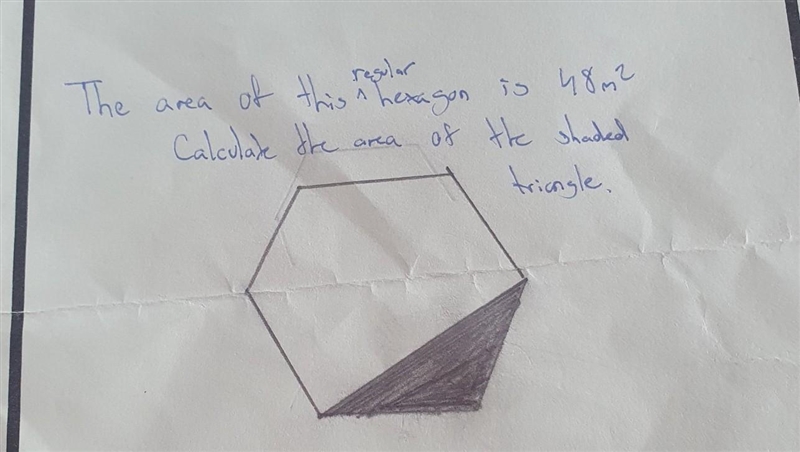 The area of this ^ regular hexagon is 48m²
Calculate the area of the shaded
triangle.